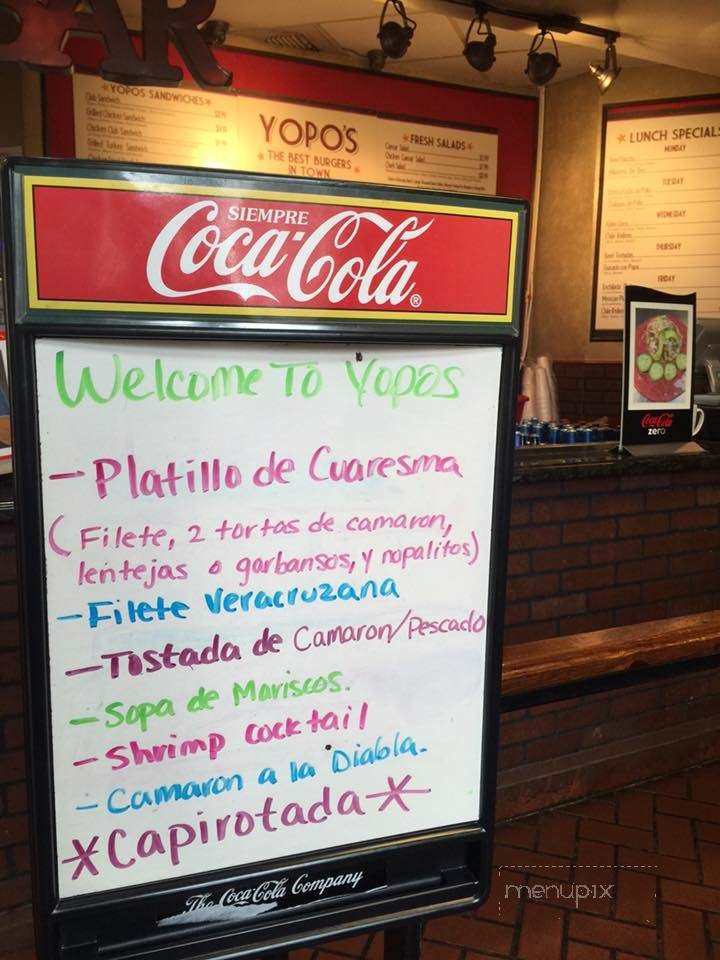 BAR
YOPOS SANDWICHES
Club Sandwich
Grilled Chicken Sandwich
Chicken Club Sandwich
Grilled Turkey Sandwich
YOPO'S
THE BEST BURGERS
IN TOWN
FRESH SALADS
Caesar Salad
Chicken Caesar Salad
Chef Salad
LUNCH SPECIALS
MONDAY
TUESDAY
WEDNESDAY
THURSDAY
FRIDAY
SIEMPRE
Coca-Cola ®
Welcome To Yopos
- Platillo de Cuaresma
(Filete, 2 tortas de camaron,
lentejas o garbansos, y nopalitos)
- Filete Veracruzana
- Tostada de Camaron/Pescado
- Sopa de Mariscos.
- Shrimp cocktail
- Camaron a la Diabla.
*Capirotada*
The Coca-Cola Company
Coca-Cola
zero
menupix